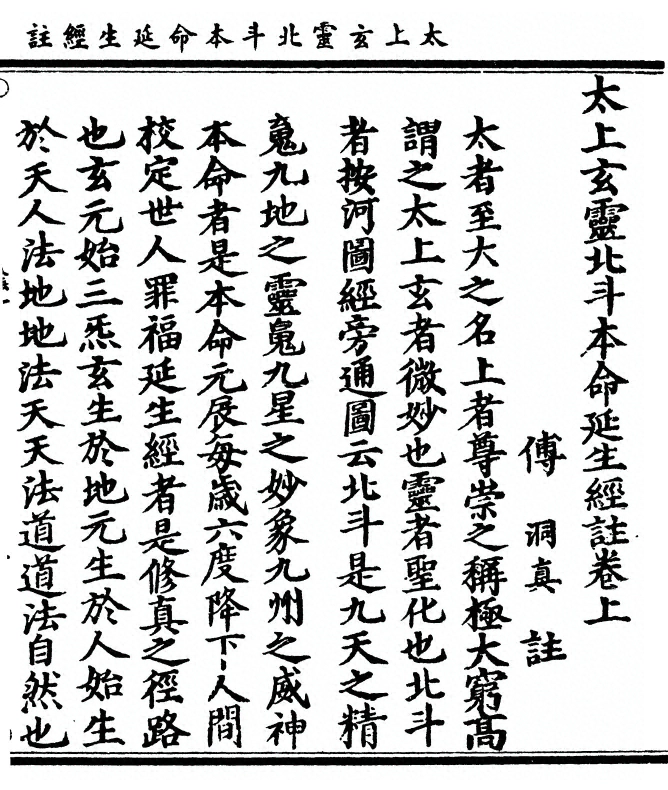 太上玄靈北斗本命延生經註
太上玄靈北斗本命延生經註卷上
傅洞真註
太者至大之名上者尊崇之稱極大窮高
謂之太上玄者微妙也靈者聖化也北斗
者按河圖經旁通圖云北斗是九天之精
䰟九地之靈䰟九星之妙象九州之威神
本命者是本命元辰每歲六度降下人間
校定世人罪福延生經者是修真之徑路
也玄元始三炁玄生於地元生於人始生
於天人法地地法天天法道道法自然也